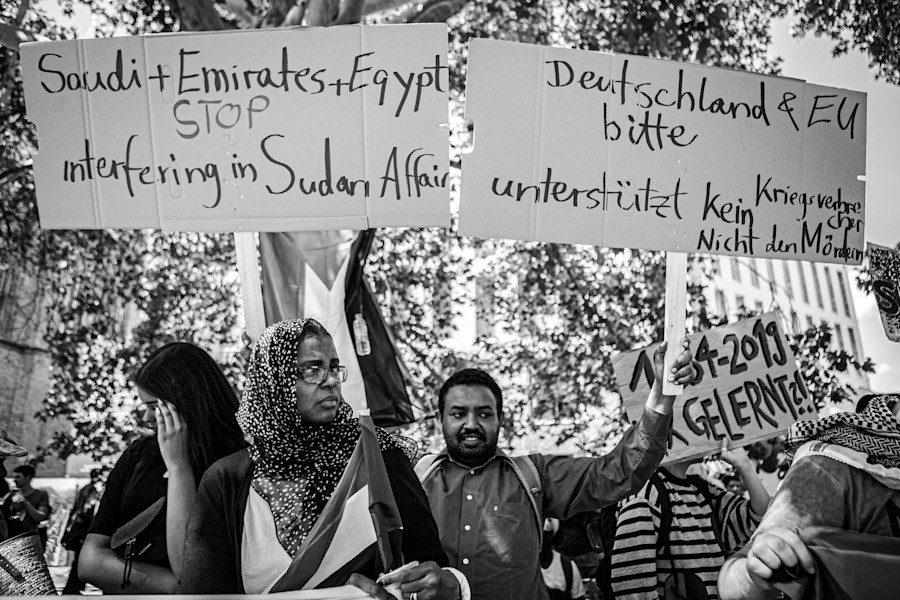 Saudi + Emirates + Egypt
STOP
interfering in Sudan Affair
Deutschland & EU
bitte
unterstützt kein Kriegsverbre
cher
Nicht den Mördern
4-2019
GELERNT?!